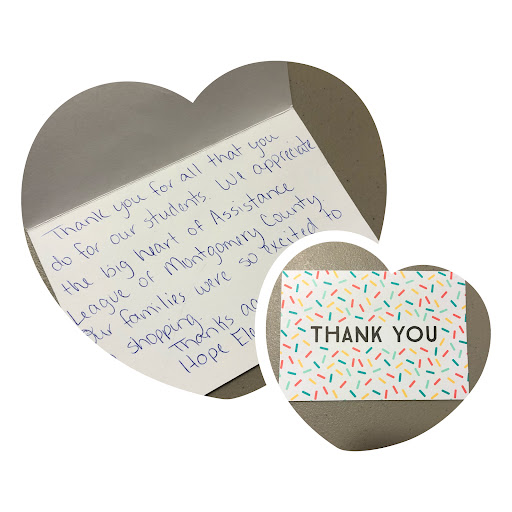 Thank you for all that you
do for our students. We appreciate
the big heart of Assistance
League of Montgomery County.
Our families were so excited to
shopping.
Thanks
Hope
THANK YOU